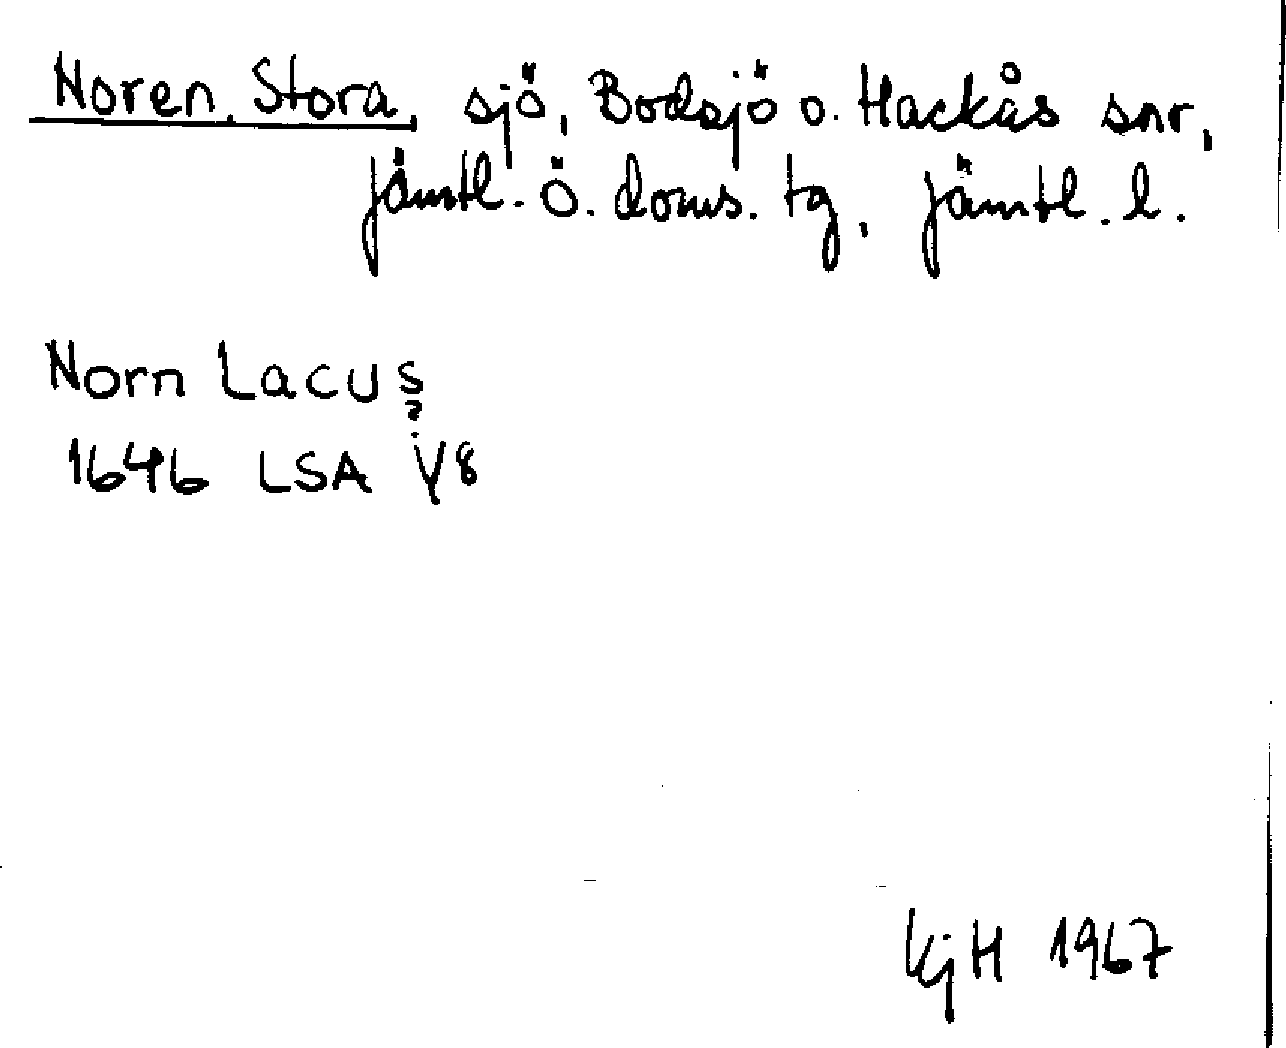 Noren, Stora, sjö, Bodsjö o. Hackås snr,
Jämtl. ö. doms. tg, Jämtl. l.
Norn Lacus
?
1646 LSA Y8
KjH 1967